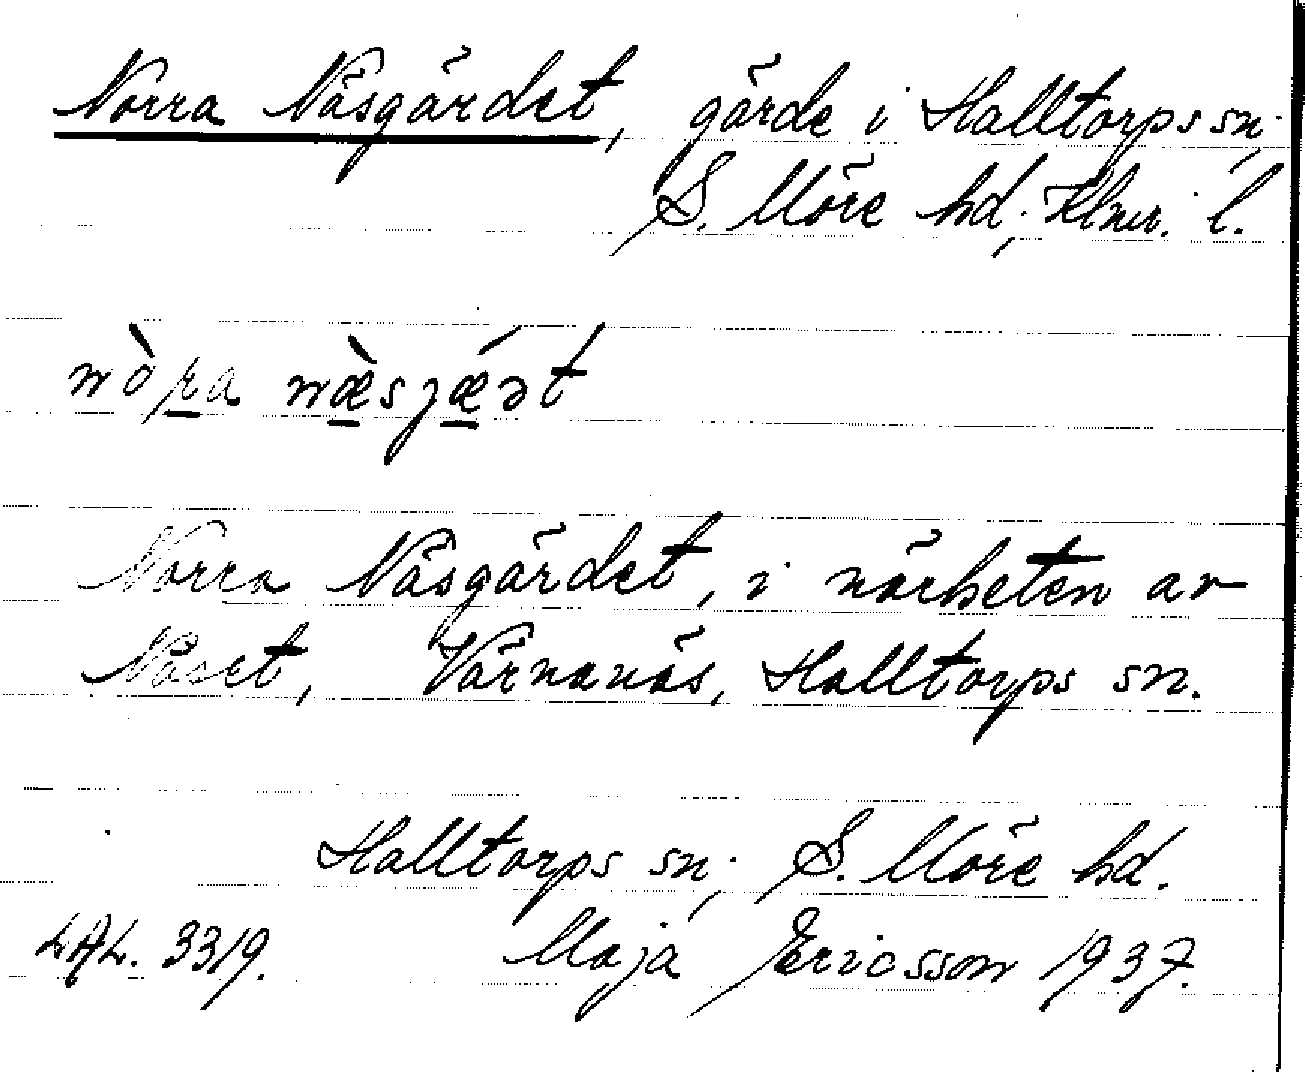 Norra Näsgärdet, gärde i Halltorps sn,
S. Möre hd, Klmr. l.
nòra næ̀sjǽət
Norra Näsgärdet, i närheten av
Näset, Värnanäs, Halltorps sn.
Halltorps sn, S. Möre hd.
LAL. 3319. Maja Ericsson 1937.